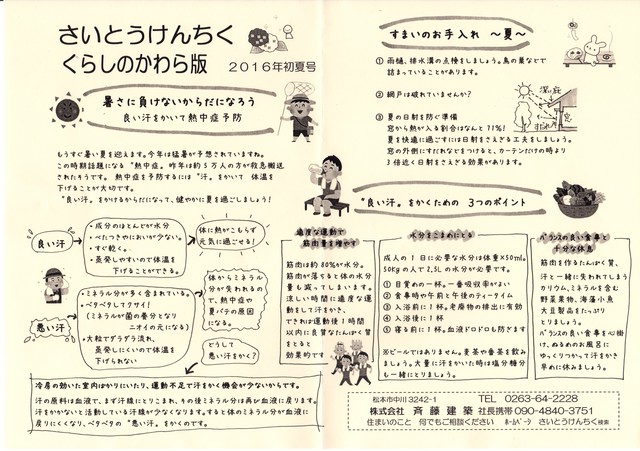 さいとうけんちく
くらしのかわら版
2016年初夏号
暑さに負けないからだになろう
良い汗をかいて熱中症予防
もうすぐ暑い夏を迎えます。今年は猛暑が予想されていますね。
この時期話題になる“熱中症。昨年は約5万人の方が救急搬送
されたそうです。熱中症を予防するには“汗”をかいて 体温を
下げることが大切です。
“良い汗”をかけるからだになって、健やかに夏を過ごしましょう!
良い汗
・成分のほとんどが水分
・べたつきやにおいが少ない。
・すぐ乾く。
・蒸発しやすいので体温を
下げることができる。
体に熱がこもらず
元気に過ごせる!
悪い汗
・ミネラル分が多く含まれている。
・ベタベタしてクサイ!
(ミネラルが菌の養分となり
ニオイの元になる)
・大粒でダラダラ流れ、
蒸発しにくいので体温を
下げられない
体からミネラル
分が失われるの
で、熱中症や
夏バテの原因
になる。
どうして
悪い汗をかく?
冷房の効いた室内ばかりにいたり、運動不足で汗をかく機会が少ないからです。
汗の原料は血液で、まず汗腺にとりこまれ、その後ミネラル分は再び血液に戻ります。
汗をかかないと活動している汗腺が少なくなります。すると体のミネラル分が血液に
戻りにくくなり、ベタベタの“悪い汗”をかくのです。
すまいのお手入れ ~夏~
① 雨樋、排水溝の点検をしましょう。鳥の巣などで
詰まっていることがあります。
② 網戸は破れていませんか?
③ 夏の日射を防ぐ準備
窓から熱が入る割合はなんと71%!
夏を快適に過ごすには日射をさえぎる工夫をしましょう。
窓の外側にすだれなどをつけると、カーテンだけの時より
3倍近く日射をさえぎる効果があります。
すだれ
“良い汗”をかくための 3つのポイント
適度な運動で
筋肉量を増やす
筋肉は約80%が水分。
筋肉が落ちると体の水分
量も減ってしまいます。
涼しい時間に適度な運
動をして汗をかき、
できれば運動後1時間
以内に良質なたんぱく質
をとると
効果的です
水分をこまめにとる
成人の1日に必要な水分は体重×50ml。
50kgの人で2.5Lの水分が必要です。
① 目覚めの一杯。一番吸収率がよい
② 食事時や午前と午後のティータイム
③ 入浴前に1杯。老廃物の排出に有効
④ 入浴後に1杯
⑤ 寝る前に1杯。血液ドロドロも防ぎます
※ビールではありません。麦茶や番茶を飲み
ましょう。大量に汗をかいた時は塩分糖分
も一緒にとりましょう。
バランスの良い食事と
十分な休息
筋肉を作るたんぱく質、
汗と一緒に失われてしまう
カリウム、ミネラルを含む
野菜果物、海藻小魚
大豆製品をたっぷり
とりましょう。
バランスの良い食事を心掛
け、ぬるめのお風呂に
ゆっくりつかって汗をかき
早めに休みましょう。
松本市中川3242-1 TEL 0263-64-2228
株式会社 斉藤建築 社長携帯 090-4840-3751
住まいのこと 何でもご相談ください ホームページ さいとうけんちく検索